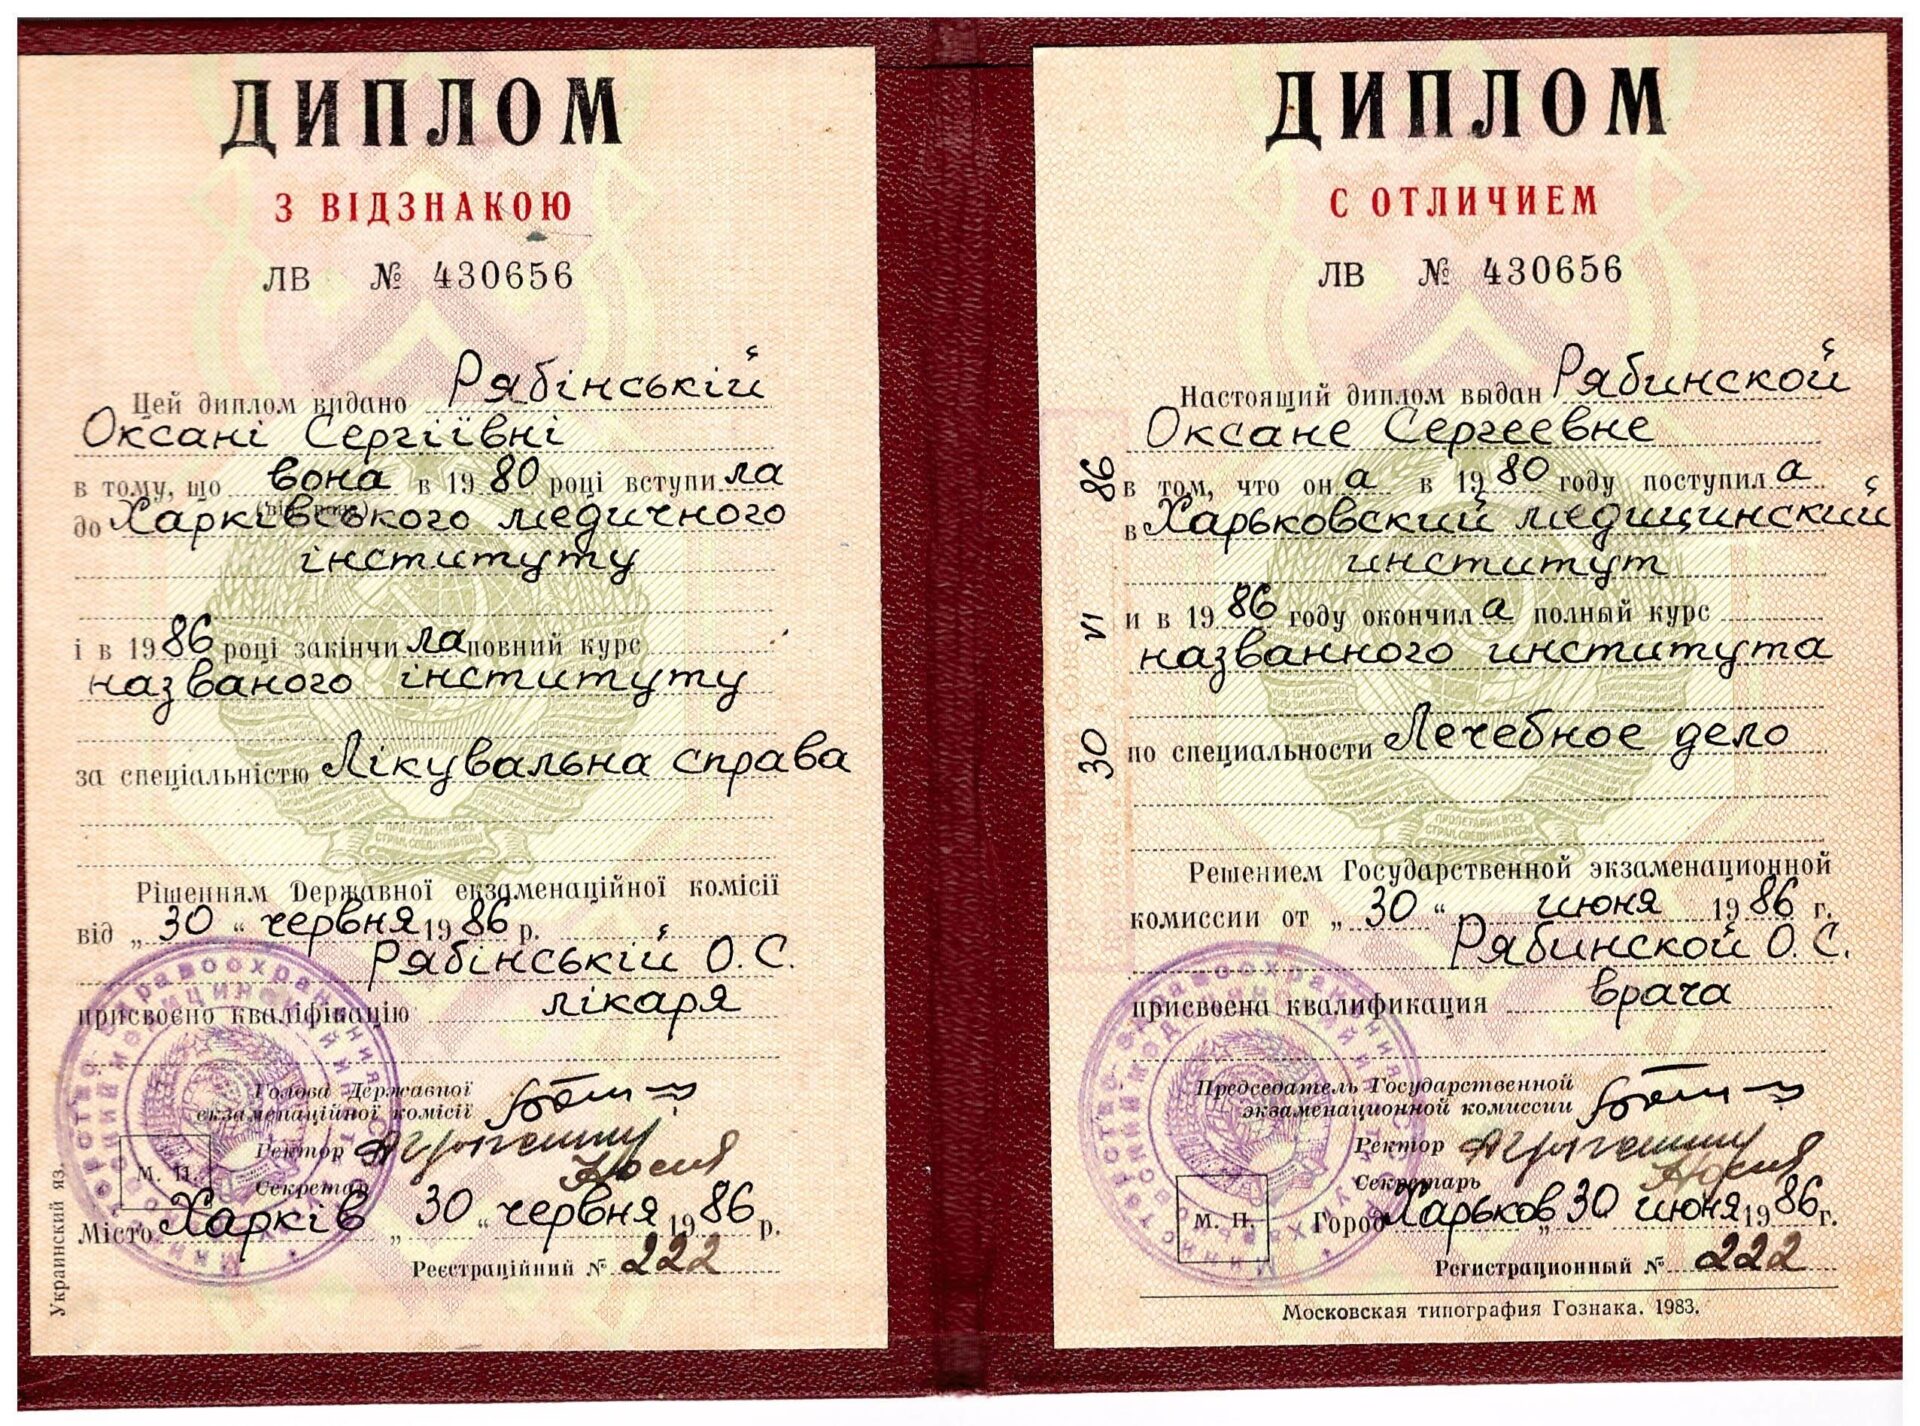 ДИПЛОМ
З ВІДЗНАКОЮ
ЛВ № 430656
Цей диплом видано Рябінській
Оксані Сергіївні
в тому, що вона в 1980 році вступила
до Харківського медичного
інституту
і в 1986 році закінчила повний курс
названого інституту
за спеціальністю Лікувальна справа
Рішенням Державної екзаменаційної комісії
від „30“ червня 1986 р.
Рябінській О.С.
присвоєно кваліфікацію лікаря
Голова Державної
екзаменаційної комісії
Ректор
Секретар
М. П.
Місто Харків „30“ червня 1986 р.
Реєстраційний № 222
Украинский яз.
ДИПЛОМ
С ОТЛИЧИЕМ
ЛВ № 430656
Настоящий диплом выдан Рябинской
Оксане Сергеевне
в том, что она в 1980 году поступила
в Харьковский медицинский
институт
и в 1986 году окончила полный курс
названного института
по специальности Лечебное дело
Решением Государственной экзаменационной
комиссии от „30“ июня 1986 г.
Рябинской О.С.
присвоена квалификация врача
Председатель Государственной
экзаменационной комиссии
Ректор
Секретарь
М. П.
Город Харьков „30“ июня 1986 г.
Регистрационный № 222
Московская типография Гознака. 1983.
30 VI 86